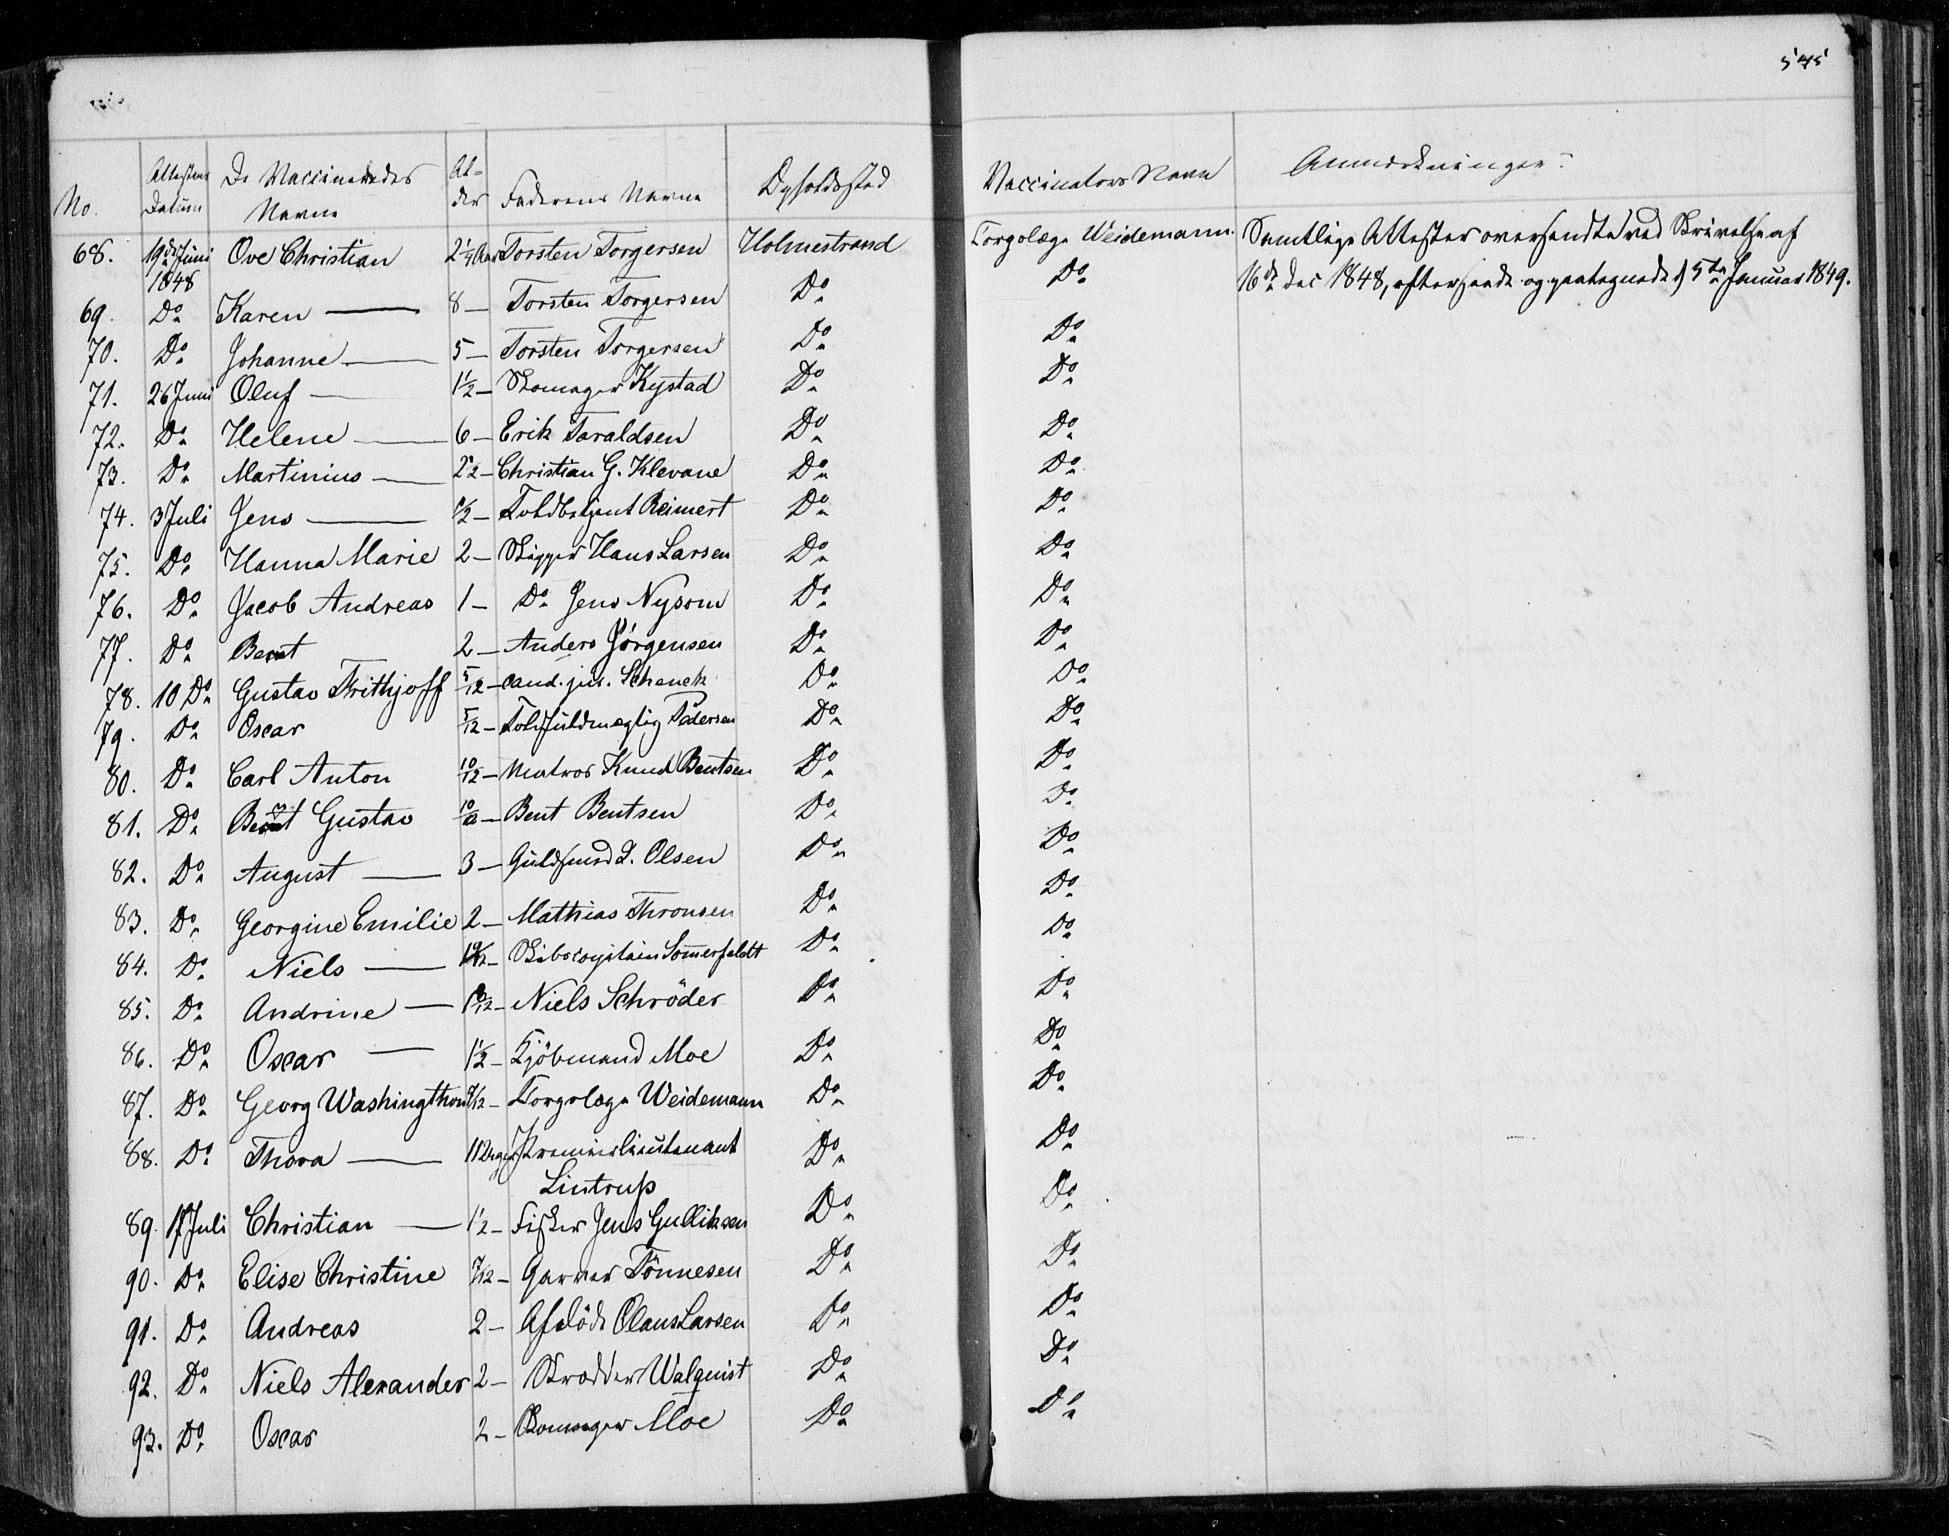 545
No. Attestens Datum De Vaccineredes Navne Alder Faderens Navne Opholdssted Vaccinators Navn Anmærkninger.
68. 19de Juni 1848 Ove Christian 2 1/4 Aar Torsten Torgersen Holmestrand Corpslæge Weidemann. Samtlige Attester oversendte ved Skrivelse af
16de Dec 1848, eftersaade og paategnede d 5te Januar 1849.
69. Do Karen — 8 — Torsten Torgersen Do Do
70. Do Johanne — 5 — Torsten Torgersen Do Do
71. 26 Juni Oluf — 1 1/2 — Skomager Kystad Do Do
72. Do Helene — 6 — Erik Taraldsen Do Do
73. Do Martinius — 2 1/2 — Christian G. Klevane Do Do
74. 3 Juli Jens — 1/2 — Toldbetjent Reimert Do Do
75. Do Hanna Marie 2 — Skipper Hans Larsen Do Do
76. Do Jacob Andreas 1 — Do Jens Nysom Do Do
77. Do Bernt 2 — Anders Jörgensen Do Do
78. 10 Do Gustav Frithjoff 5/12 — cand. jur. Schenck Do Do
79. Do Oscar 5/12 — Toldfuldmægtig Pedersen Do Do
80. Do Carl Anton 10/12 — Matros Knud Bentsen Do Do
81. Do Bernt Gustav 10/12 — Bent Bentsen Do Do
82. Do August — 3 — Guldsmed L. Olsen Do Do
83. Do Georgine Emilie 2 — Mathias Thronsen Do Do
84. Do Niels — Skibscapitain Sommerfeldt Do Do
85. Do Andrine — Niels Schröder Do Do
86. Do Oscar — 1 1/2 — Kjöbmand Moe Do Do
87. Do Georg Washingthon /12 — Corpslæge Weidemann Do Do
88. Do Thora — 11 Dage Premierlieutenant Do Do
Lintrup
89. 17 Juli Christian — 1 1/2 — Fisker Jens Gulliksen Do Do
90. Do Elise Christine 7/12 — Garver Tönnesen Do Do
91. Do Andreas 2 — Afdöde Olaus Larsen Do Do
92. Do Niels Alexander 2 — Skrædder Walquist Do Do
93. Do Oscar 2 — Skomager Moe Do Do